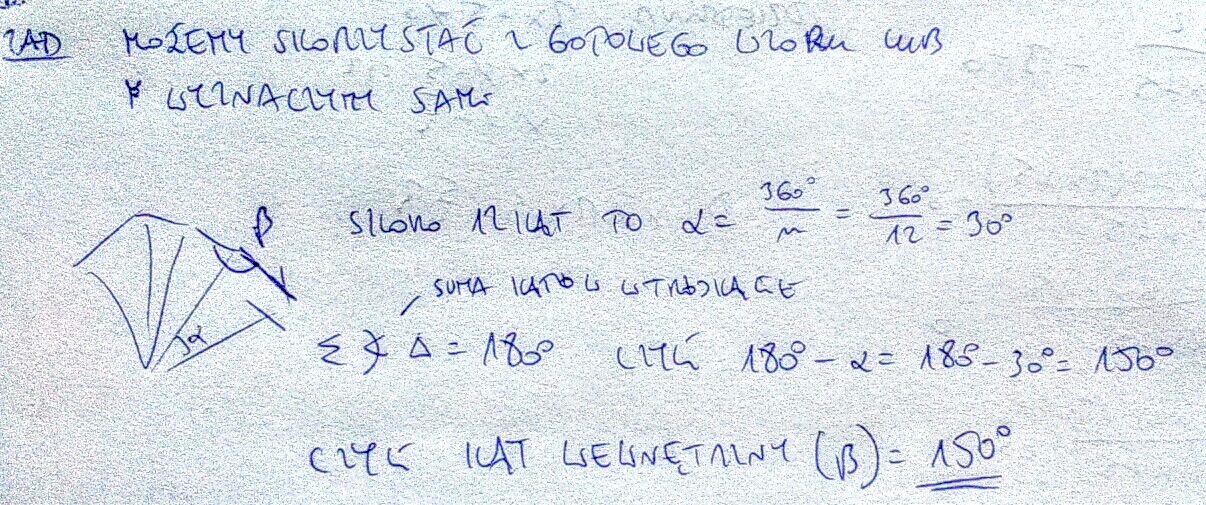 ZAD MOŻEMY SKORZYSTAĆ Z GOTOWEGO WZORU LUB
WYZNACZYĆ SAMI
β
SKORO 12 KĄT TO α = 360°/n = 360°/12 = 30°
SUMA KĄTÓW W TRÓJKĄCIE
α
Σ ∢ Δ = 180° CZYLI 180° - α = 180 - 30° = 150°
CZYLI KĄT WEWNĘTRZNY (β) = 150°